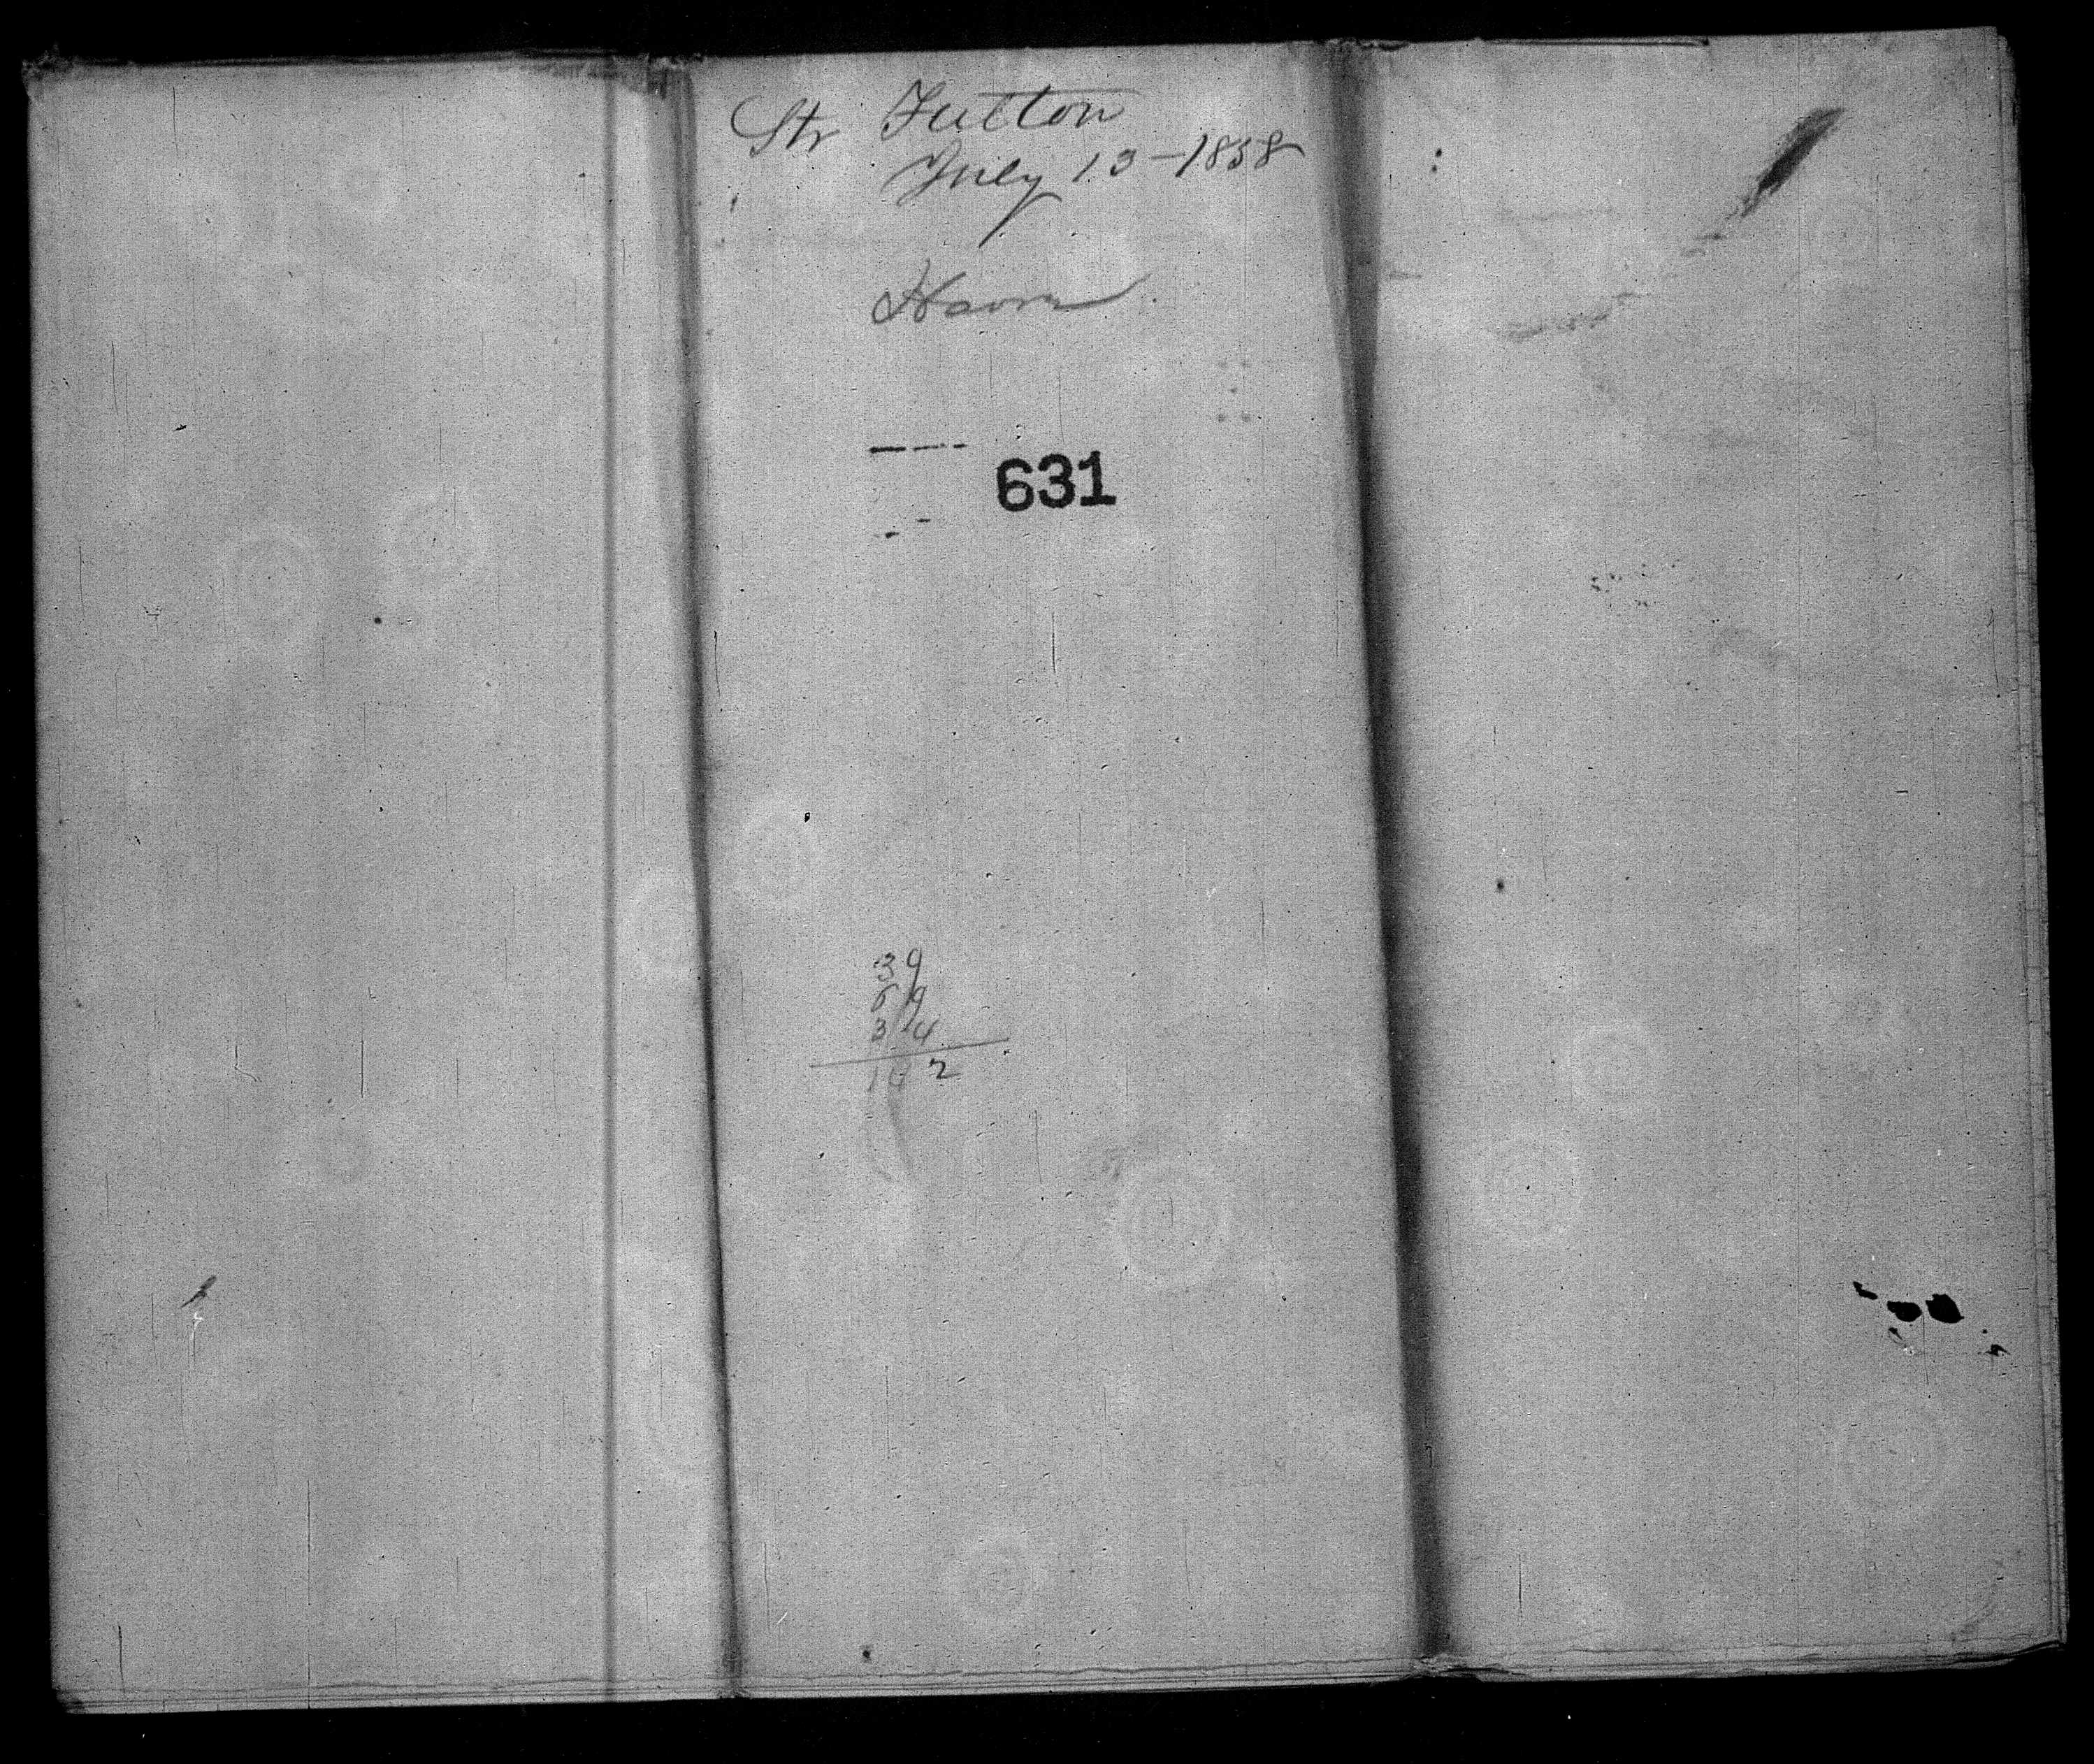 Str Fulton
July 13-1858
Havre
631
39
69
34
142